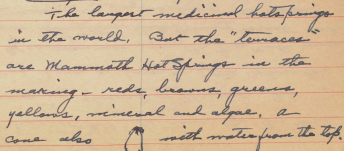 The largest medicinal hotsprings
in the world. But the "terraces"
are Mammoth HotSprings in the
making - reds, browns, greens,
yellows, mineral and algae, a
cone also with water from the top.